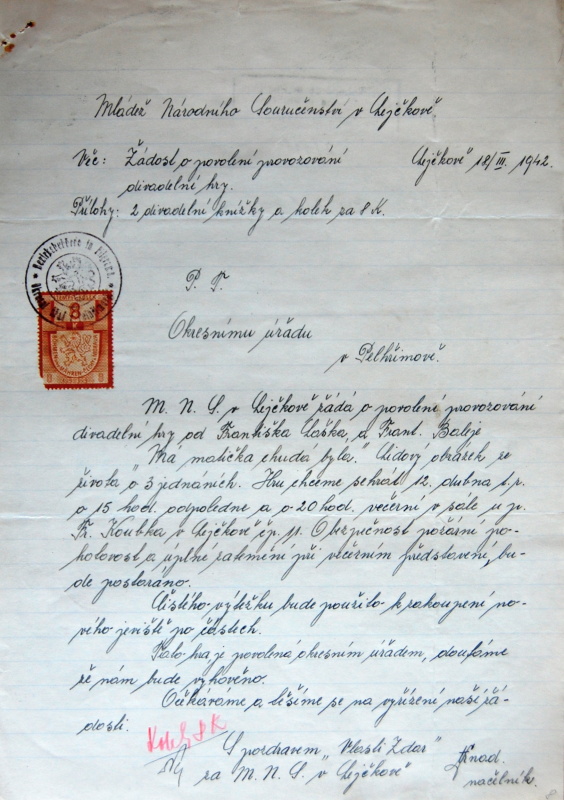 Mládež Národního Souručenství v Lejčkově.
Věc: Žádost o povolení provozování
divadelní hry.
Lejčkově 18/III. 1942.
Přílohy: 2 divadelní knížky a kolek za 8 K.
P. T.
Okresnímu úřadu
v Pelhřimově.
8
M. N. S. v Lejčkově žádá o povolení provozování
divadelní hry od Františka a Frant. Baleje
„Má matička chudá byla." Lidový obrázek ze
života o 3 jednáních. Hru chceme sehrát 12. dubna t. r.
o 15 hod. odpoledne a o 20 hod. večerní v sále u p.
Fr. Koubka v Lejčkově čp. 11. O bezpečnost požární po-
hotovost a úplné zatemění při večerním představení, bu-
de postaráno.
Čistého výtěžku bude použito k zakoupení no-
vého jeviště po částech.
Tato hra je povolena okresním úřadem, doufáme
že nám bude vyhověno.
Očkáváme a těšíme se na vyřízení naší žá-
dosti.
Kolek 8 K
S pozdravem „Vlasti Zdar"
za M. N. S. v Lejčkově
náčelník.